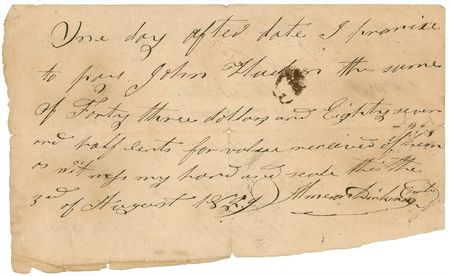 One day after date I promise
to pay John Hudson the same
of Forty three dollars and Eighty seven
and half Cents for value received of him
as witness my hand and seale this the
3rd of August 18